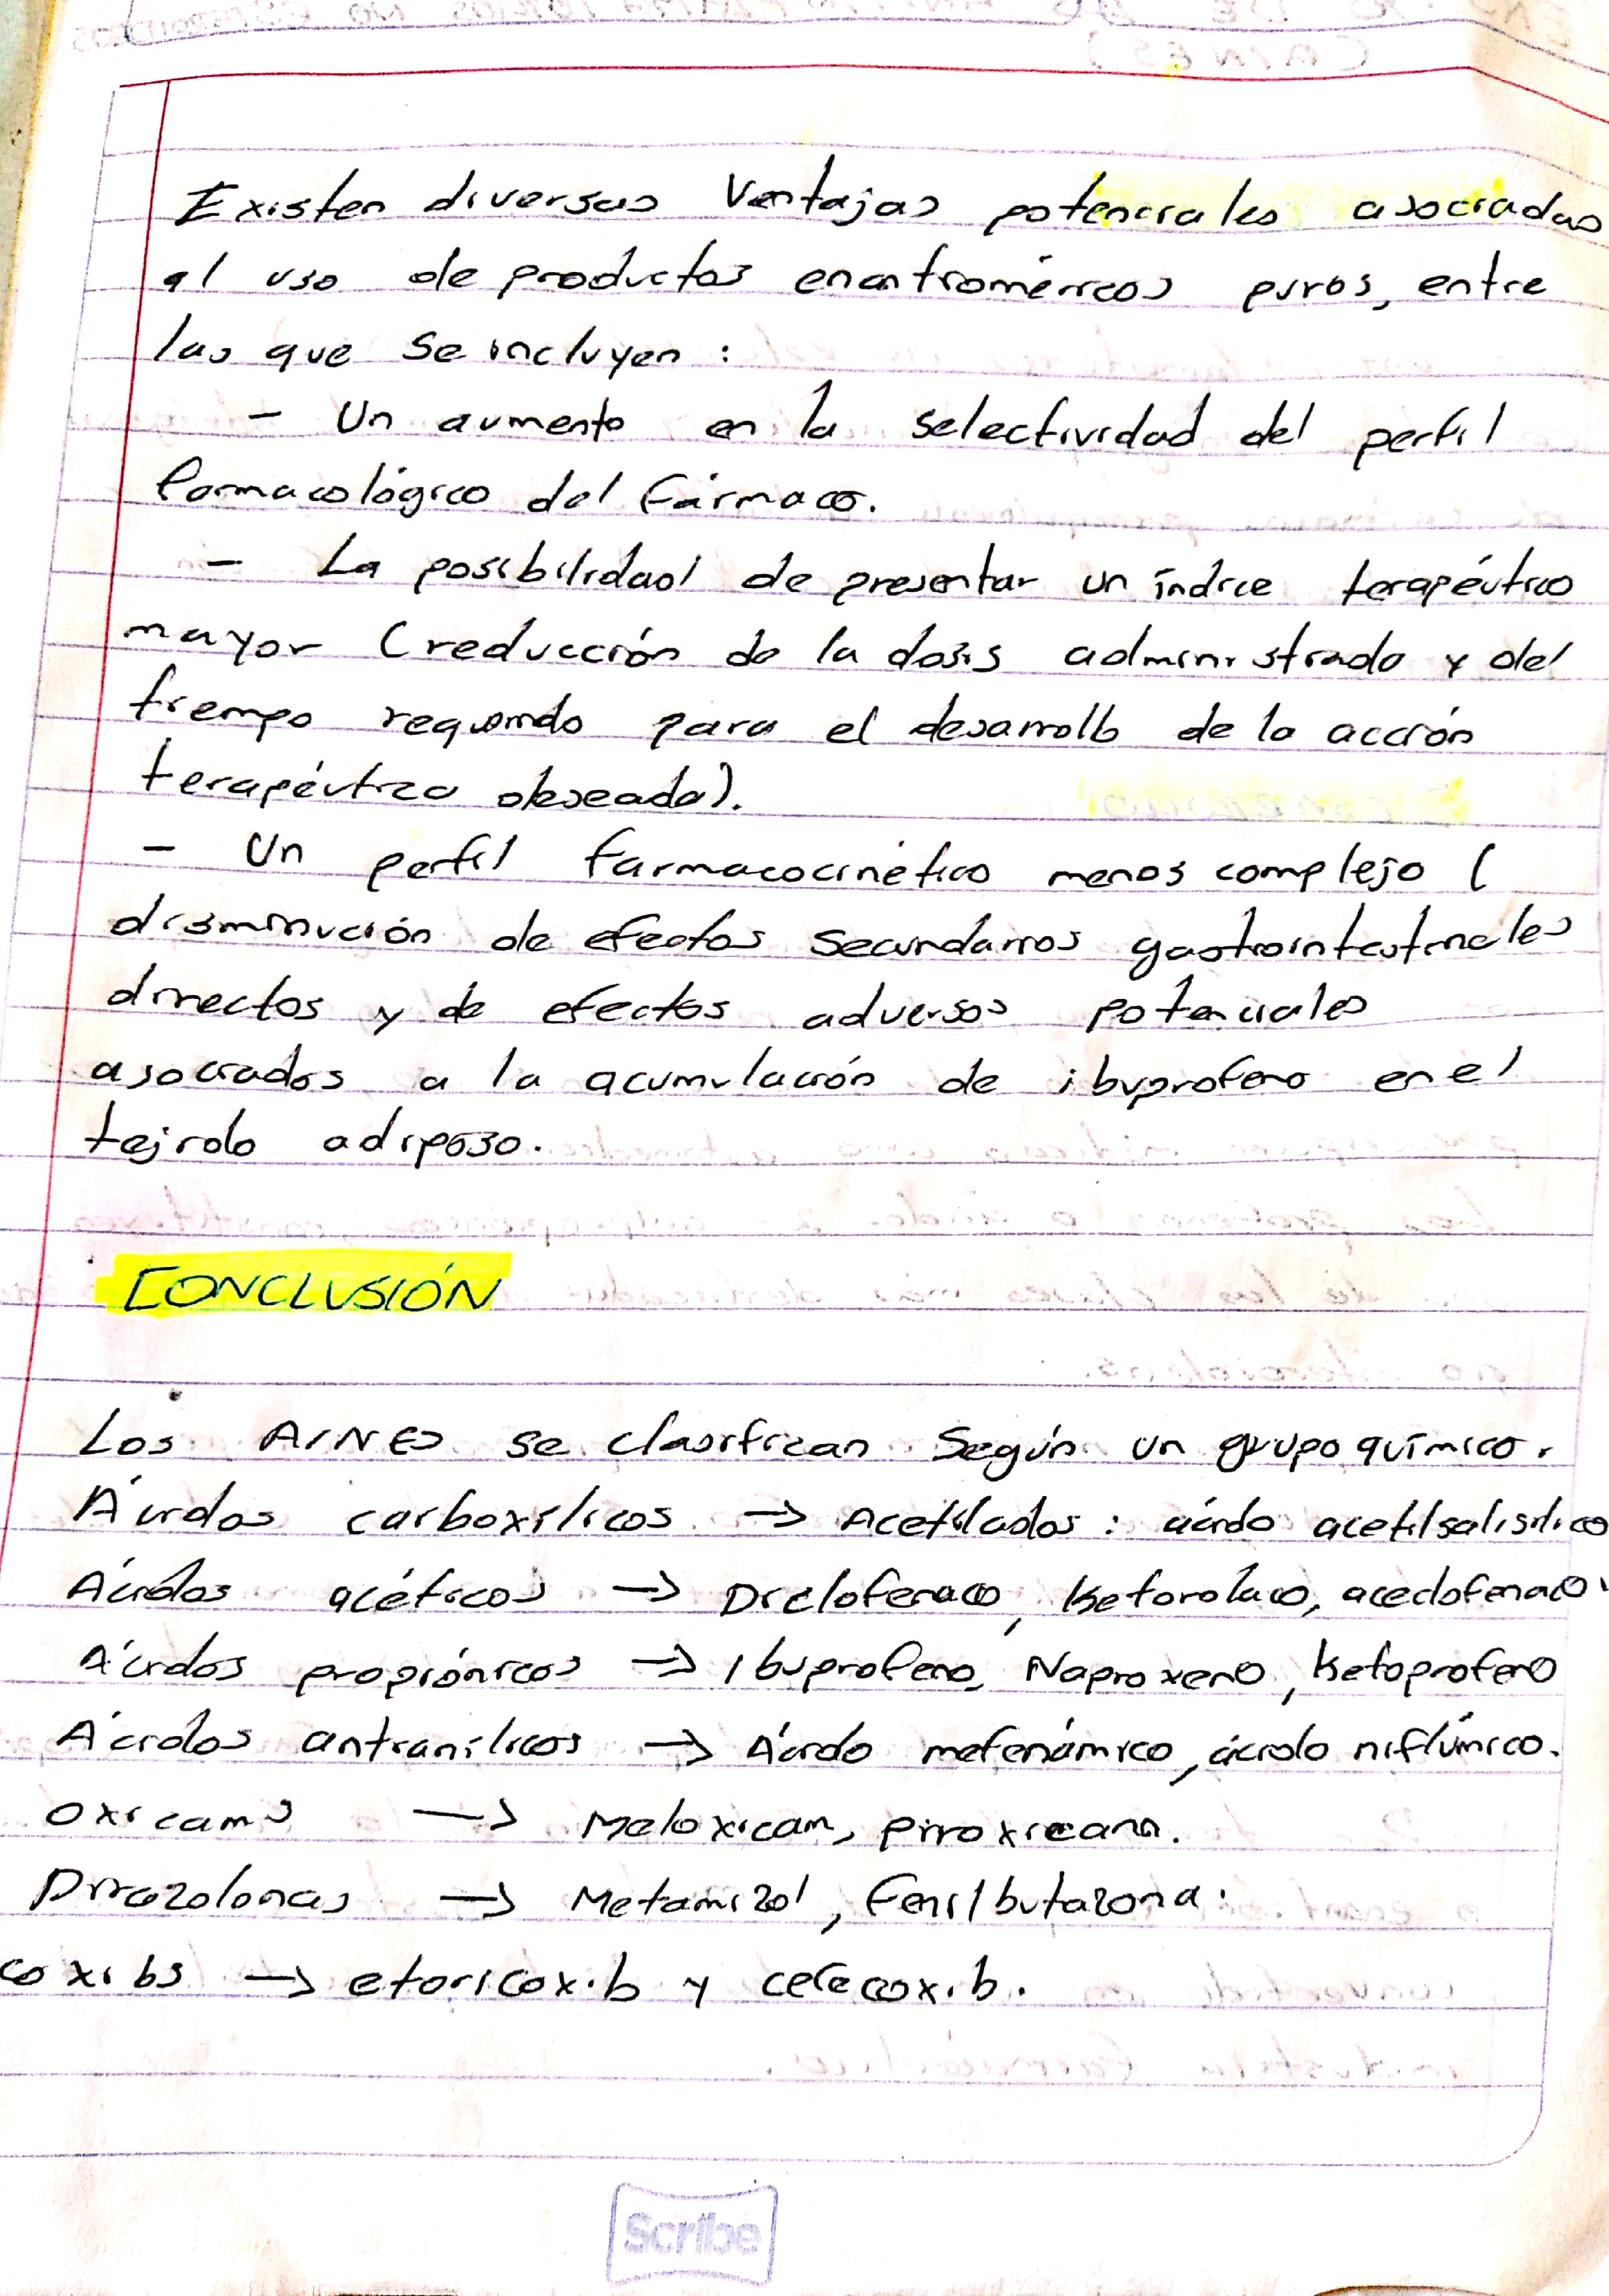 Existen diversas Ventajas potenciales asociadas
al uso de productos enantioméricos puros, entre
las que se incluyen :
- Un aumento en la selectividad del perfil
farmacológico del fármaco.
- La posibilidad de presentar un índice terapéutico
mayor (reducción de la dosis administrada y del
tiempo requerido para el desarrollo de la acción
terapéutica deseada).
- Un perfil farmacocinético menos complejo (
disminución de efectos secundarios gastrointestinales
directos y de efectos adversos potenciales
asociados a la acumulación de ibuprofeno en el
tejido adiposo.
CONCLUSIÓN
Los AINES se clasifican según un grupo químico.
Ácidos carboxílicos → Acetilados : ácido acetilsalisilico
Ácidos acéticos → Diclofenaco, Ketorolaco, aceclofenaco.
Ácidos propiónicos → Ibuprofeno, Naproxeno, Ketoprofeno
Ácidos antranílicos → Ácido mefenámico, ácido niflúmico.
Oxicams → Meloxicam, piroxicam.
Pirazolonas → Metamizol, Fenilbutazona.
coxibs → etoricoxib y celecoxib.
Scribe